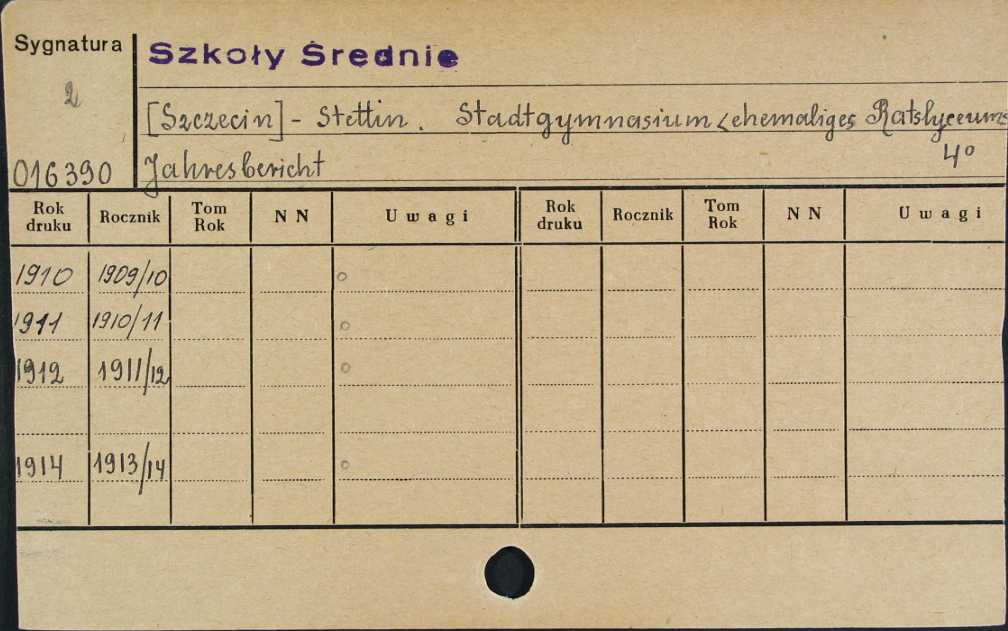 Sygnatura
Szkoły Średnie
2
[Szczecin] - Stettin. Stadtgymnasium <ehemaliges Ratslyceums
016390 Jahresbericht 4°
Rok druku Rocznik Tom Rok N N Uwagi Rok druku Rocznik Tom Rok N N Uwagi
1910 1909/10 o
1911 1910/11 o
1912 1911/12 o
1914 1913/14 o